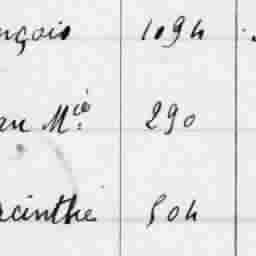 nçois 1094
an M.cé 290
acinthe 504